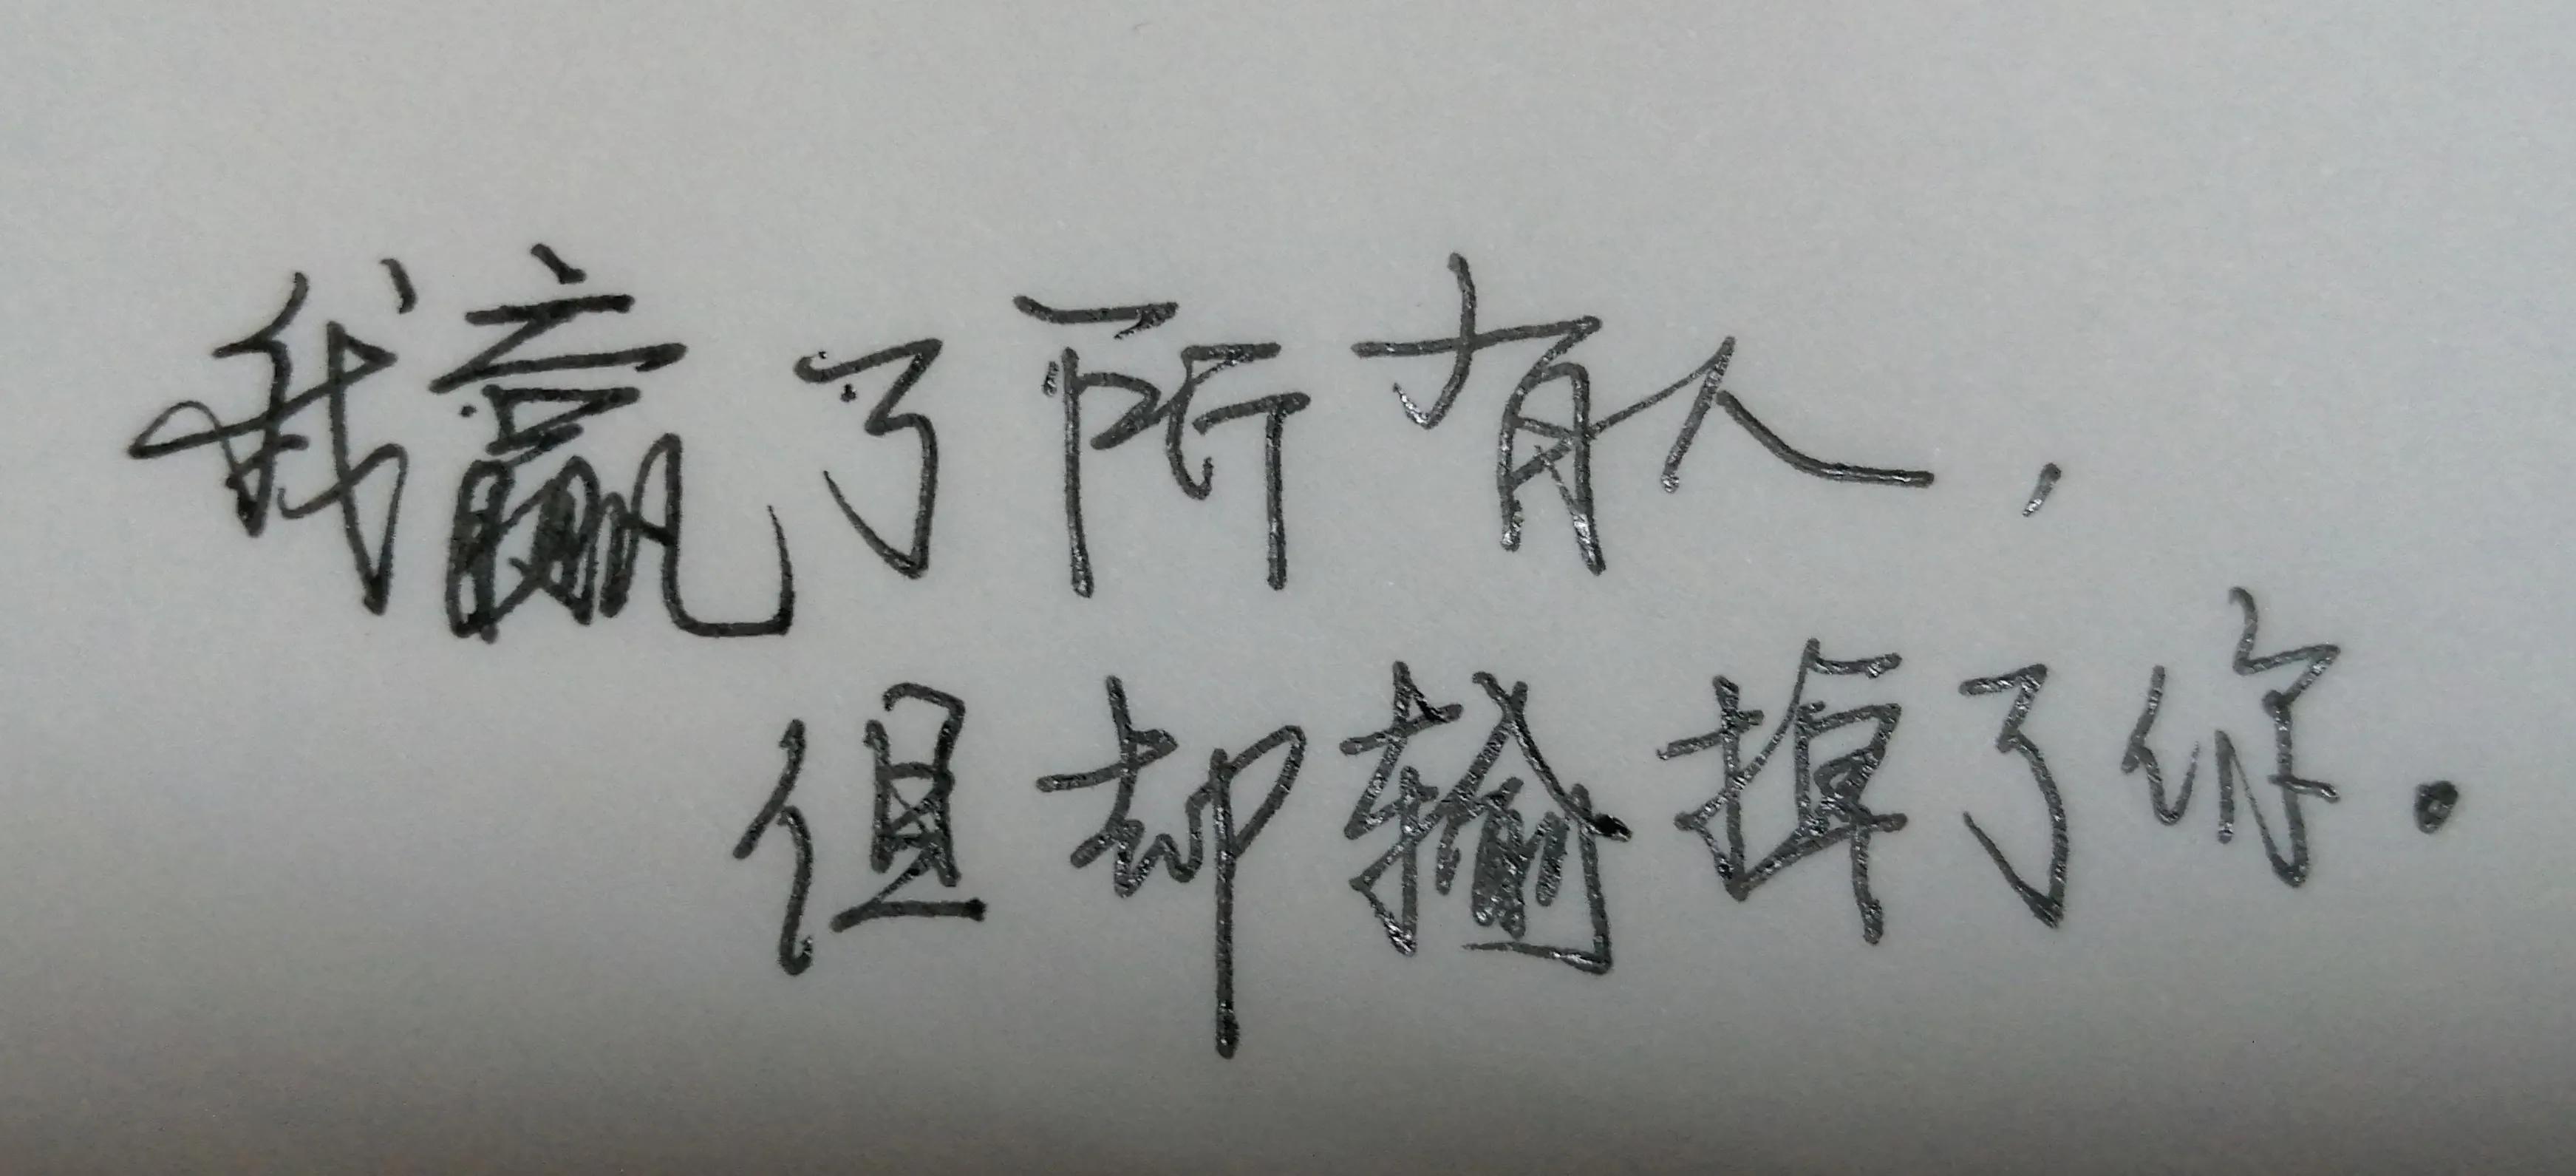 我赢了所有人，
但却输掉了你.